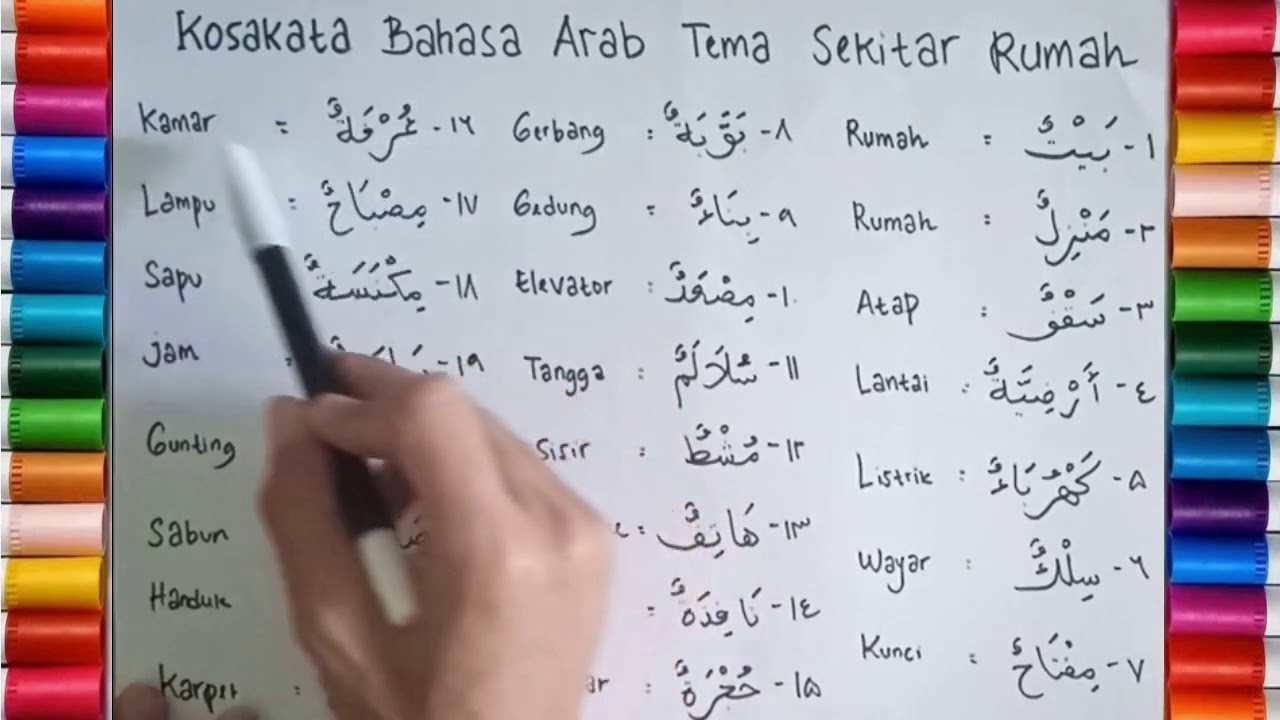 Kosakata Bahasa Arab Tema Sekitar Rumah
١- بَيْتٌ = Rumah
٢- مَنْزِلٌ = Rumah
٣- سَقْفٌ : Atap
٤- أَرْضِيَّةٌ : Lantai
٥- كَهْرَبَاءٌ : Listrik
٦- سِلْكٌ : Wayar
٧- مِفْتَاحٌ = Kunci
٨- بَوَّبَةٌ : Gerbang
٩- بِنَاءٌ = Gedung
١٠- مِصْعَدٌ : Elevator
١١- سُلَالَمٌ : Tangga
١٢- مُشْطٌ : Sisir
١٣- هَاتِفٌ =
١٤- نَافِذَةٌ =
١٥- حُجْرَةٌ =
١٦- غُرْفَةٌ = Kamar
١٧- مِصْبَاحٌ = Lampu
١٨- مِكْنَسَةٌ Sapu
١٩- Jam
Gunting
Sabun
Handuk
Karpet :